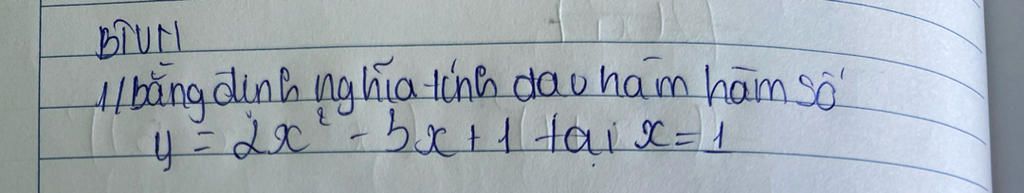 BTVN
1/ bằng định nghĩa tính đao hàm hàm số
y = 2x² - 5x + 1 tại x = 1